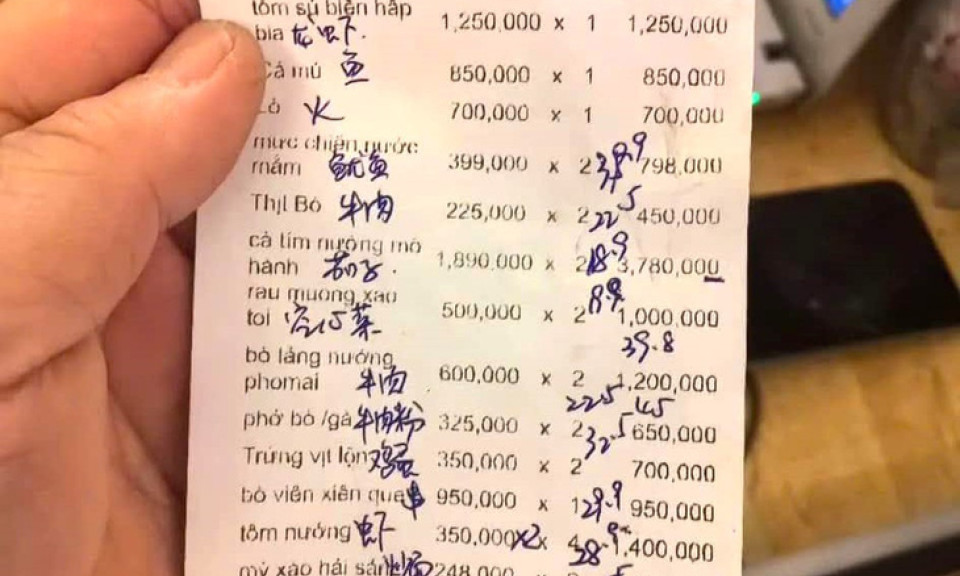 tôm sú biển hấp
bia 龙虾. 1,250,000 x 1 1,250,000
Cá mú 鱼 850,000 x 1 850,000
火 700,000 x 1 700,000
mực chiên nước
mắm 鱿鱼 399,000 x 2 39.9 798,000
Thịt Bò 牛肉 225,000 x 2 22.5 450,000
cà tím nướng mỡ
hành 茄子. 1,890,000 x 2 18.9 3,780,000
rau muống xào
toi 空心菜 500,000 x 2 8.9 1,000,000
39.8
bò lảng nướng
phomai 牛肉 600,000 x 2 1,200,000
22.5 45
phở bò /gà 牛肉粉 325,000 x 2 32.5 650,000
Trứng vịt lộn 鸡蛋 350,000 x 2 700,000
bò viên xiên que 串 950,000 x 1 29.9 950,000
tôm nướng 虾 350,000 x2 x 4 28.9 1,400,000
mỳ xào hải sản 248,000